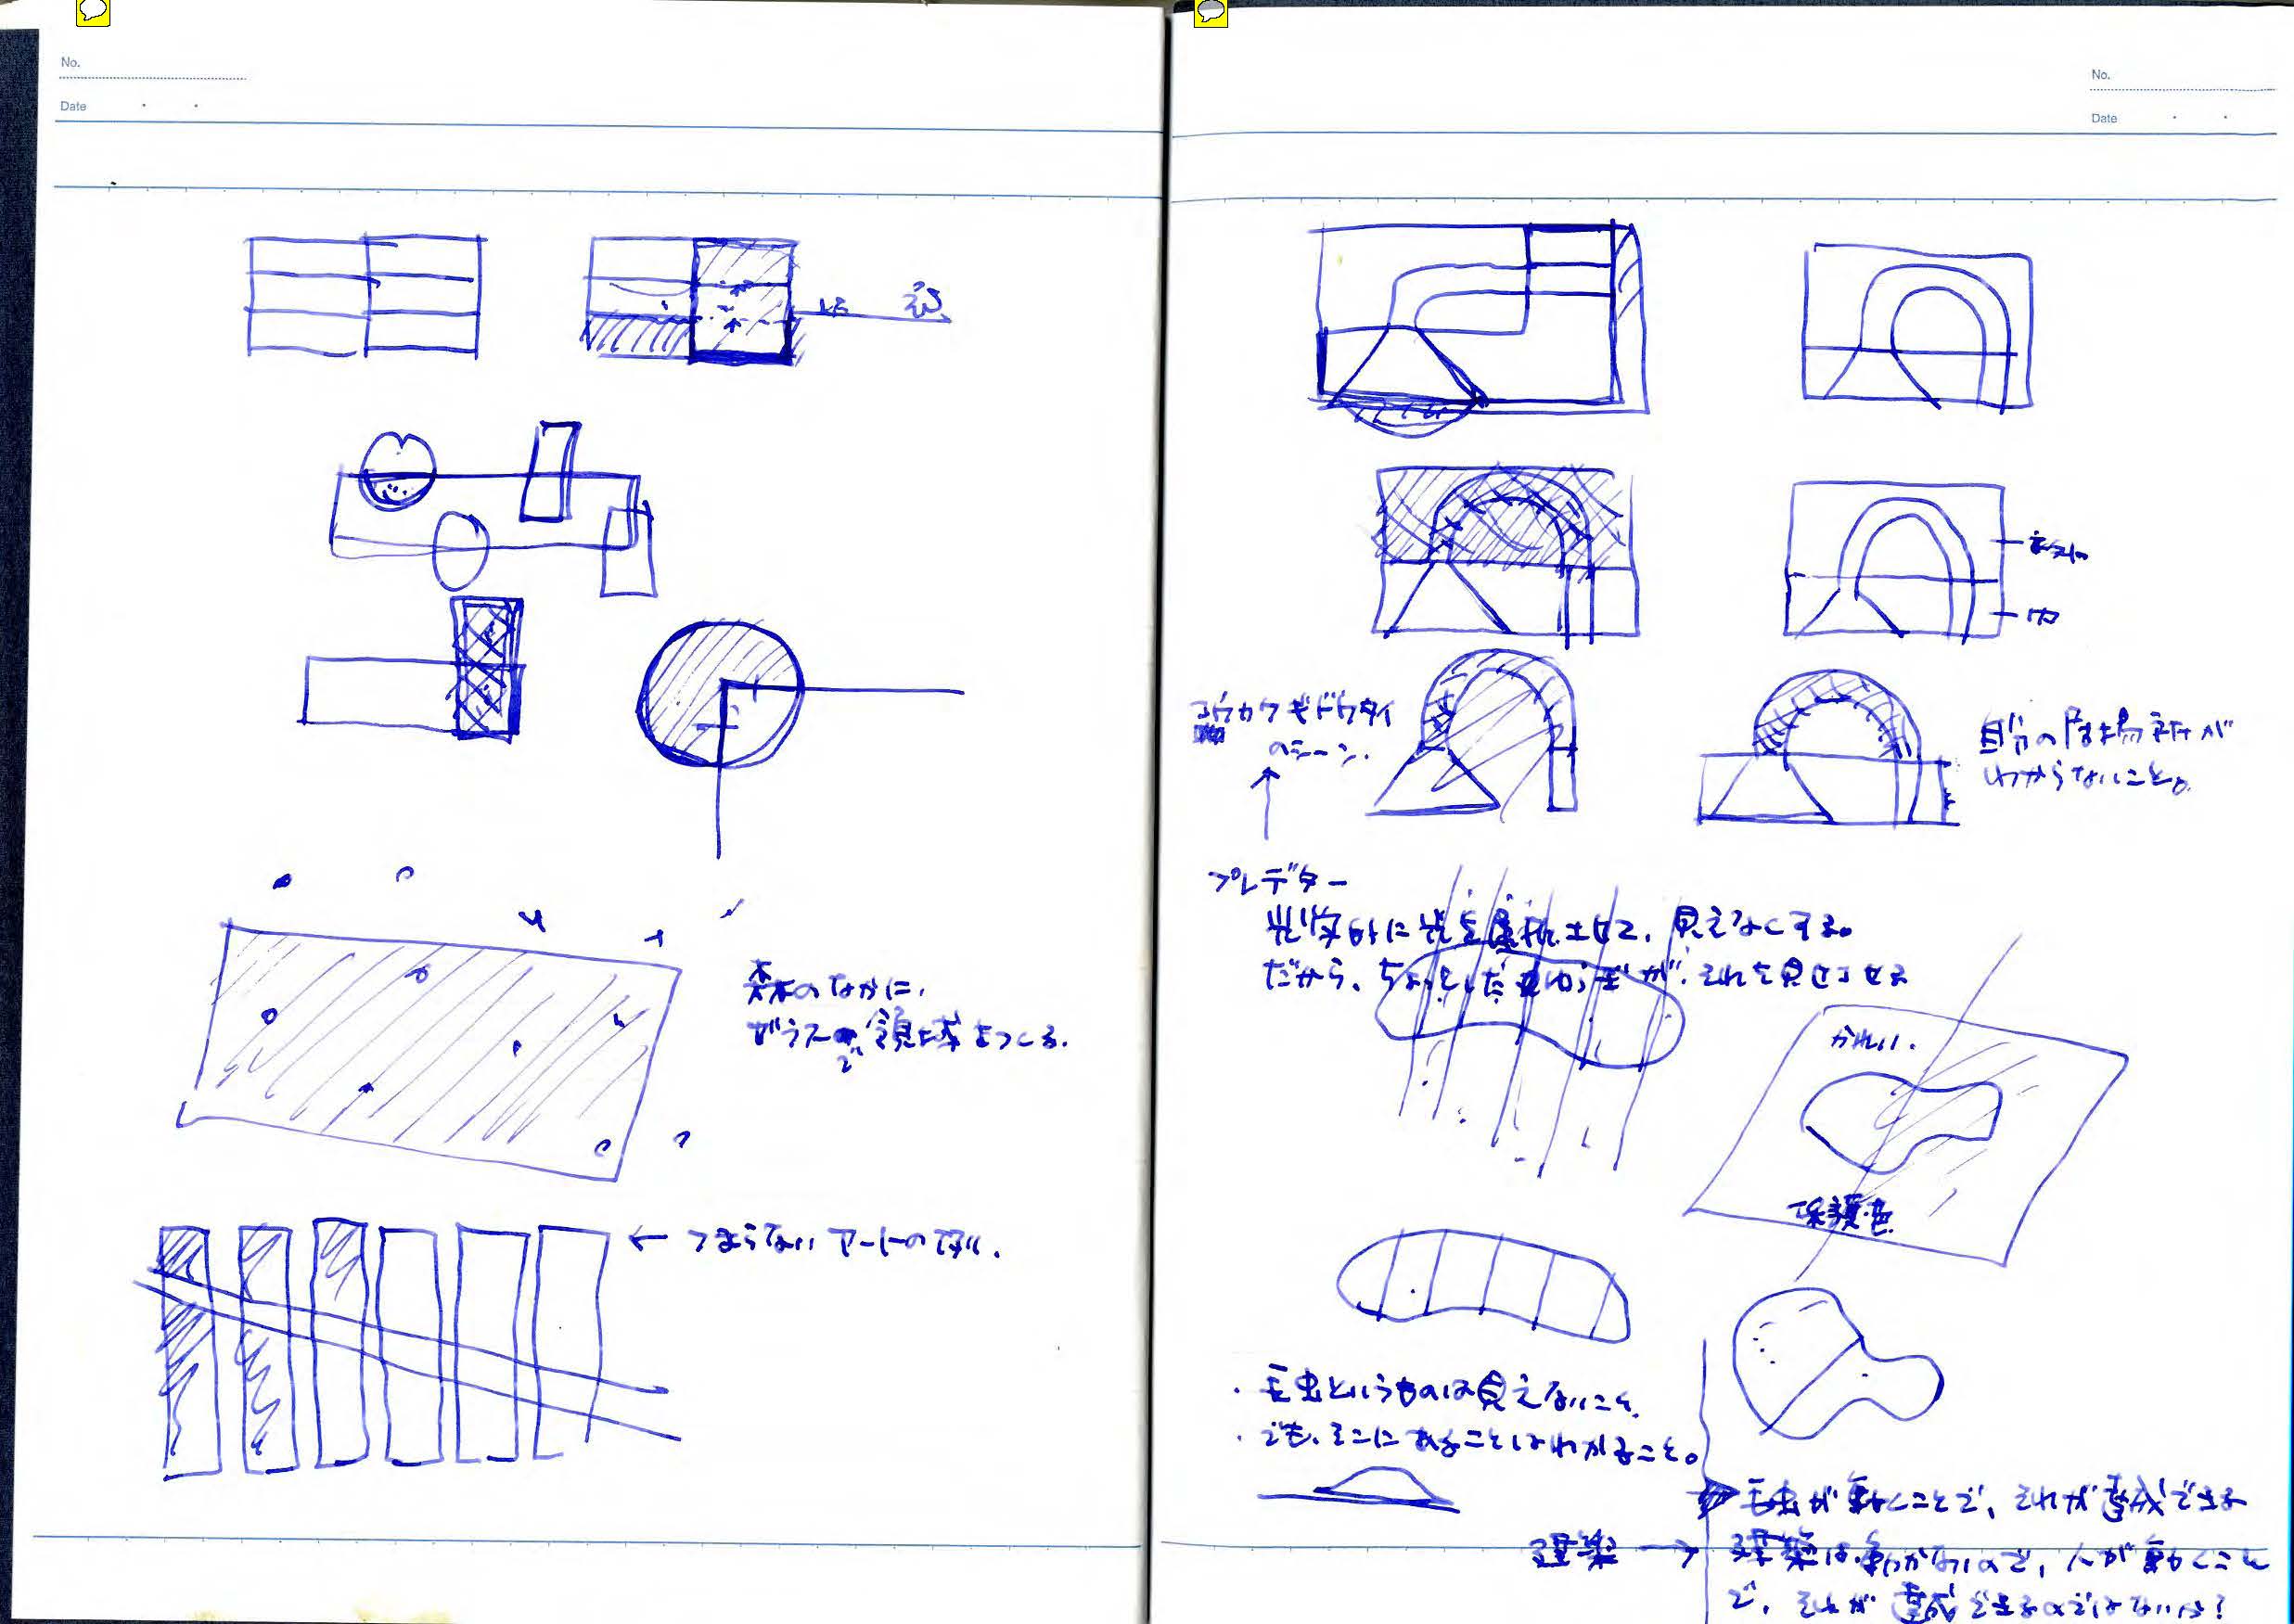 No.
Date
森のなかに、
ガラスで領域をつくる。
← つまらないアートの
No.
Date
内
コウカクキドウタイ
のシーン。
自分の居場所が
わからないこと。
プレデター
光学的に光を屈折させて、見えなくする。
だから、ちょっとした が、それを見せさせる
かれい。
保護色
・毛虫というものは見えないこと。
・でも、そこにあることはわかること。
毛虫が動くことで、それが達成できる
建築 → 建築は動かないので、人が動くこと
で、それが達成できるのではないか?